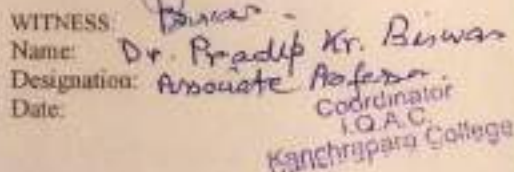 WITNESS: Biswas
Name: Dr. Pradip Kr. Biswas
Designation: Associate Professor.
Date:
Coordinator
I.Q.A.C.
Kanchrapara College